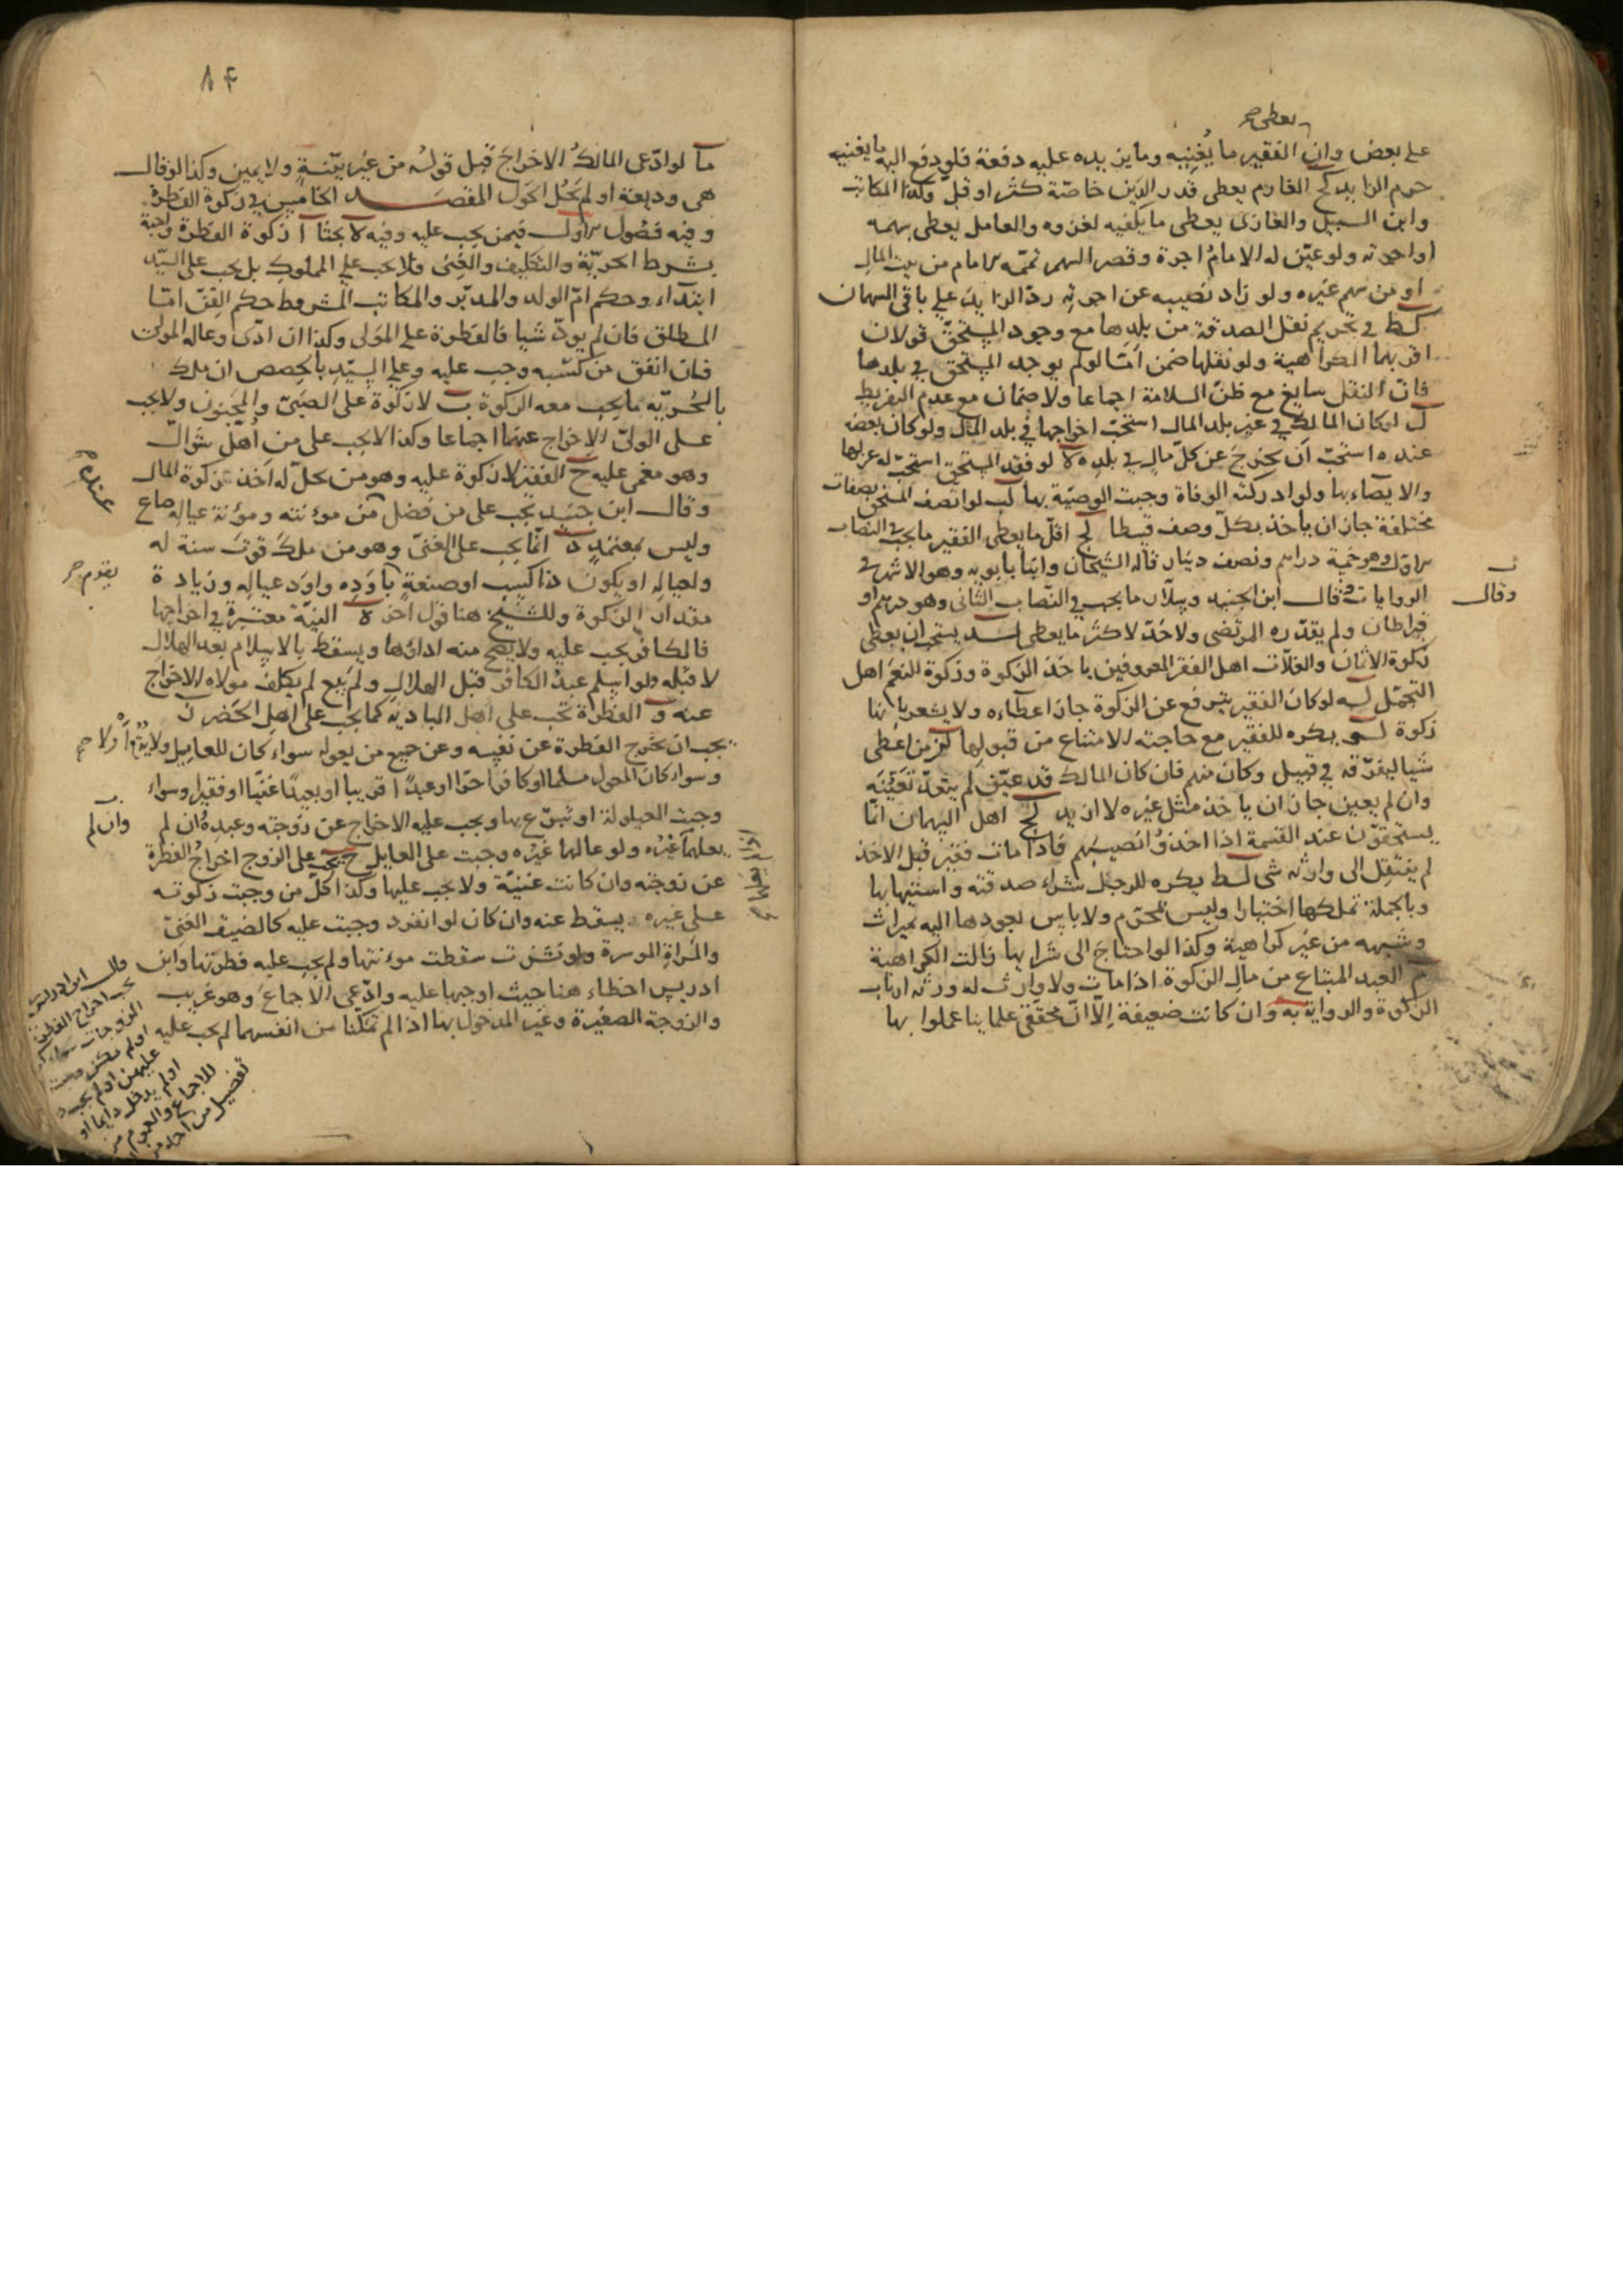 يعطى
على بعض وان الفقير ما يغنيه وما زين يده عليه دفعة فلو دفع اليه ما يغنيه
حرم الزايد كح الغارم يعطى قدر الدين خاصة كثر او قل وكذا المكاتب
وابن السبيل والغازى يعطى ما يكفيه لغزوه والعامل يعطى سهمه
او اجرته ولو عين له الامام اجرة وقصر السهم تممه الامام من بيت المال
او من سهم غيره ولو زاد نصيبه عن اجرته رد الزايد على باقى السهمان
كط فى تحريم نقل الصدقة من بلدها مع وجود المستحق قولان
اقربهما الكراهية ولو نقلها ضمن امّا لو لم يوجد المستحق فى بلدها
فان النقل سايغ مع ظن السلامة اجماعا ولا ضمان مع عدم التفريط
ل لو كان المالك فى غير بلد المال استحب اخراجها فى بلد المال ولو كان بعضه
عنده استحب ان يخرج عن كل مال فى بلده لا لو فقد المستحق استحب له عزلها
والايصاء بها ولو ادركته الوفاة وجبت الوصية بها لب لو اتصف المستحق بصفات
مختلفة جاز ان ياخذ بكل وصف قسطا لج اقل ما يعطى الفقير ما يجب فى النصاب
الاول وهو خمسة دراهم ونصف دينار قاله الشيخان وابنا بابويه وهو الاشهر فى
الروايات وقال ابن الجنيد وسلار ما يجب فى النصاب الثانى وهو درهم او
وقال
قيراطان ولم يقدره المرتضى ولا حد لاكثر ما يعطى لد يستحب ان يعطى
زكوة الاثمان والغلات اهل الفقر المعروفين باخذ الزكوة وزكوة النعم اهل
التجمل له لو كان الفقير يترفع عن الزكوة جاز اعطاءه ولا يشعر بانها
زكوة لو يكره للفقير مع حاجته الامتناع من قبولها لز من اعطى
شيا ليفرقه فى قبيل وكان منهم فان كان المالك قد عين لم يتعد تعيينه
وان لم يعين جاز ان ياخذ مثل غيره لا ازيد لح اهل السهمان انما
يستحقون عند القسمة اذا اخذوا نصيبهم فاذا مات فقير قبل الاخذ
لم ينتقل الى وارثه شى لط يكره للرجل شراء صدقته واستيهابها
وبالجملة تملكها اختيارا وليس بمحرم ولا باس بعودها اليه بميراث
وشبهه من غير كراهية وكذا لو احتاج الى شرايها زالت الكراهية
م العبد المبتاع من مال الزكوة اذا مات ولا وارث له ورثه ارباب
الزكوة والرواية به وان كانت ضعيفة الا ان محققى علماينا عملوا بها
٨٤
ما لو ادعى المالك الاخراج قبل قوله من غير بينة ولا يمين وكذا لو قال
هى وديعة او لم يحل الحول المقصد الخامس فى زكوة الفطرة
وفيه فصول الاول فيمن يجب عليه وفيه لا بحثا ا زكوة الفطرة واجبة
بشرط الحرية والتكليف والغنى فلا يجب على المملوك بل يجب على السيد
ابتداء وحكم ام الولد والمدبر والمكاتب المشروط حكم القن امّا
المطلق فان لم يود شيا فالفطرة على المولى وكذا ان ادى وعاله المولى
فان انفق من كسبه وجب عليه وعلى السيد بالحصص ان ملك
بالحرية ما يجب معه الزكوة ب لا زكوة على الصبى والمجنون ولا يجب
على الولى الاخراج عنهما اجماعا وكذا لا يجب على من اهل شوال
وهو مغمى عليه ج الفقير لا زكوة عليه وهو من يحل له اخذ زكوة المال
عندى
وقال ابن جنيد يجب على من فضل من مؤنته ومؤنة عياله صاع
وليس بمعتمد د انما يجب على الغنى وهو من ملك قوت سنة له
ولعياله او يكون ذا كسب او صنعة باوده واود عياله وزيادة
يقوم
مقدار الزكوة وللشيخ هنا قول اخر ه النية معتبرة فى اخراجها
فالكافر يجب عليه ولا يصح منه اداؤها ويسقط بالاسلام بعد الهلال
لا قبله ولو اسلم عبد الكافر قبل الهلال ولم يبع لم يكلف مولاه الاخراج
عنه و الفطرة تجب على اهل البادية كما يجب على اهل الحضر ز
يجب ان يخرج الفطرة عن نفسه وعن جميع من يعوله سواء كان للعايل ولاية ام لا
وسواء كان المعول مسلما او كافرا حرا او عبدا قريبا او بعيدا غنيا او فقيرا وسواء
وجبت العيلولة او تبرع بها ويجب عليه الاخراج عن زوجته وعبده ان لم
وان لم
يعلهما غيره ولو عالهما غيره وجبت على العايل ح يجب على الزوج اخراج الفطرة
عن زوجته وان كانت غنية ولا يجب عليها وكذا كل من وجبت زكوته
على غيره يسقط عنه وان كان لو انفرد وجبت عليه كالضيف الغنى
والمراة الموسرة ولو نشزت سقطت مؤنتها ولم يجب عليه فطرتها وابن
ادريس اخطاء هنا حيث اوجبها عليه وادعى الاجماع وهو غريب
والزوجة الصغيرة وغير المدخول بها اذا لم تمكنا من انفسهما لم يجب عليه
قال ابن ادريس
يجب اخراج الفطرة
الزوجات سواء
او لم
عليهن او لم يجب
او لم يدخل دايما او
للاجماع والعموم من
تفصيل من احد من